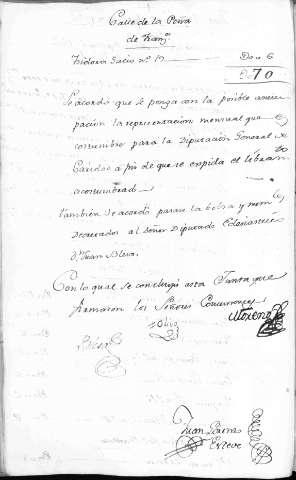 Calle de la Reina
de Franco
Isidora Galio nº 17 Dou 6
70
Se acordó que se ponga con la posible antici-
pacion la representacion mensual que es
costumbre para la Diputacion General de
Caridad a fin de que se expida el libram.to
acostumbrado
tambien se acordó pasar la bolsa y mem.les
Decretados al Señor Diputado Eclesiastico
D.n Juan Blesa.
Con lo qual se concluyó esta Junta que
firmaron los Señores Concurrentes
Moreno
Oliva
Blesa
Juan Ibarra
Esteve